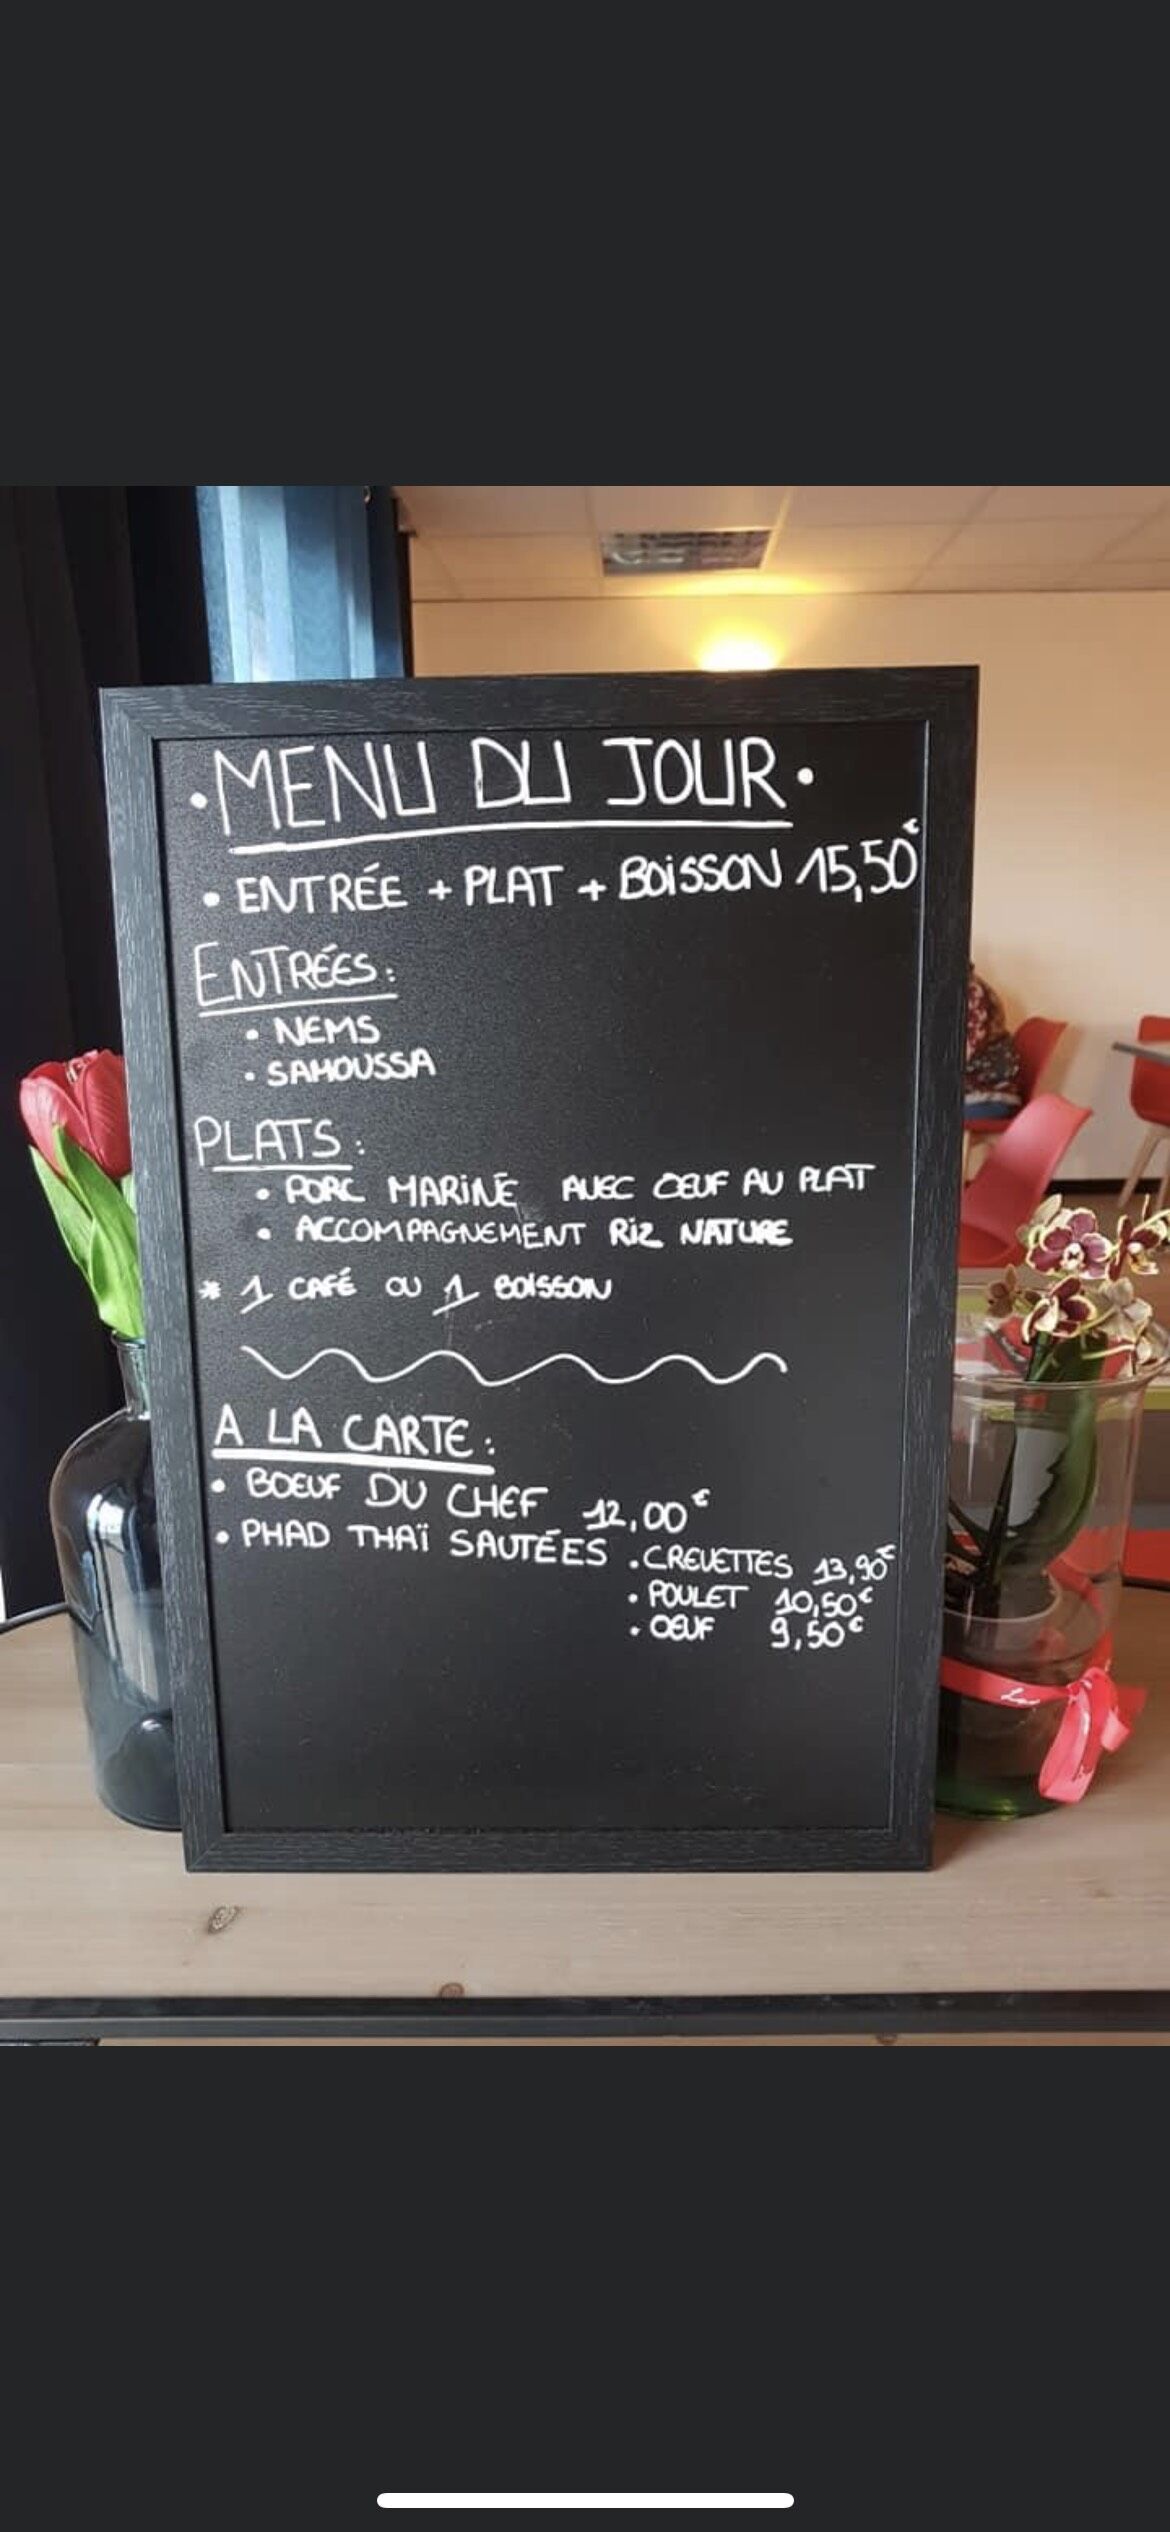 • MENU DU JOUR •
• ENTRÉE + PLAT + BOISSON 15,50€
ENTRÉES :
• NEMS
• SAMOUSSA
PLATS :
• PORC MARINÉ AVEC ŒUF AU PLAT
• ACCOMPAGNEMENT RIZ NATURE
* 1 CAFÉ OU 1 BOISSON
A LA CARTE :
• BOEUF DU CHEF 12,00€
• PHAD THAÏ SAUTÉES • CREVETTES 13,90€
• POULET 10,50€
• ŒUF 9,50€